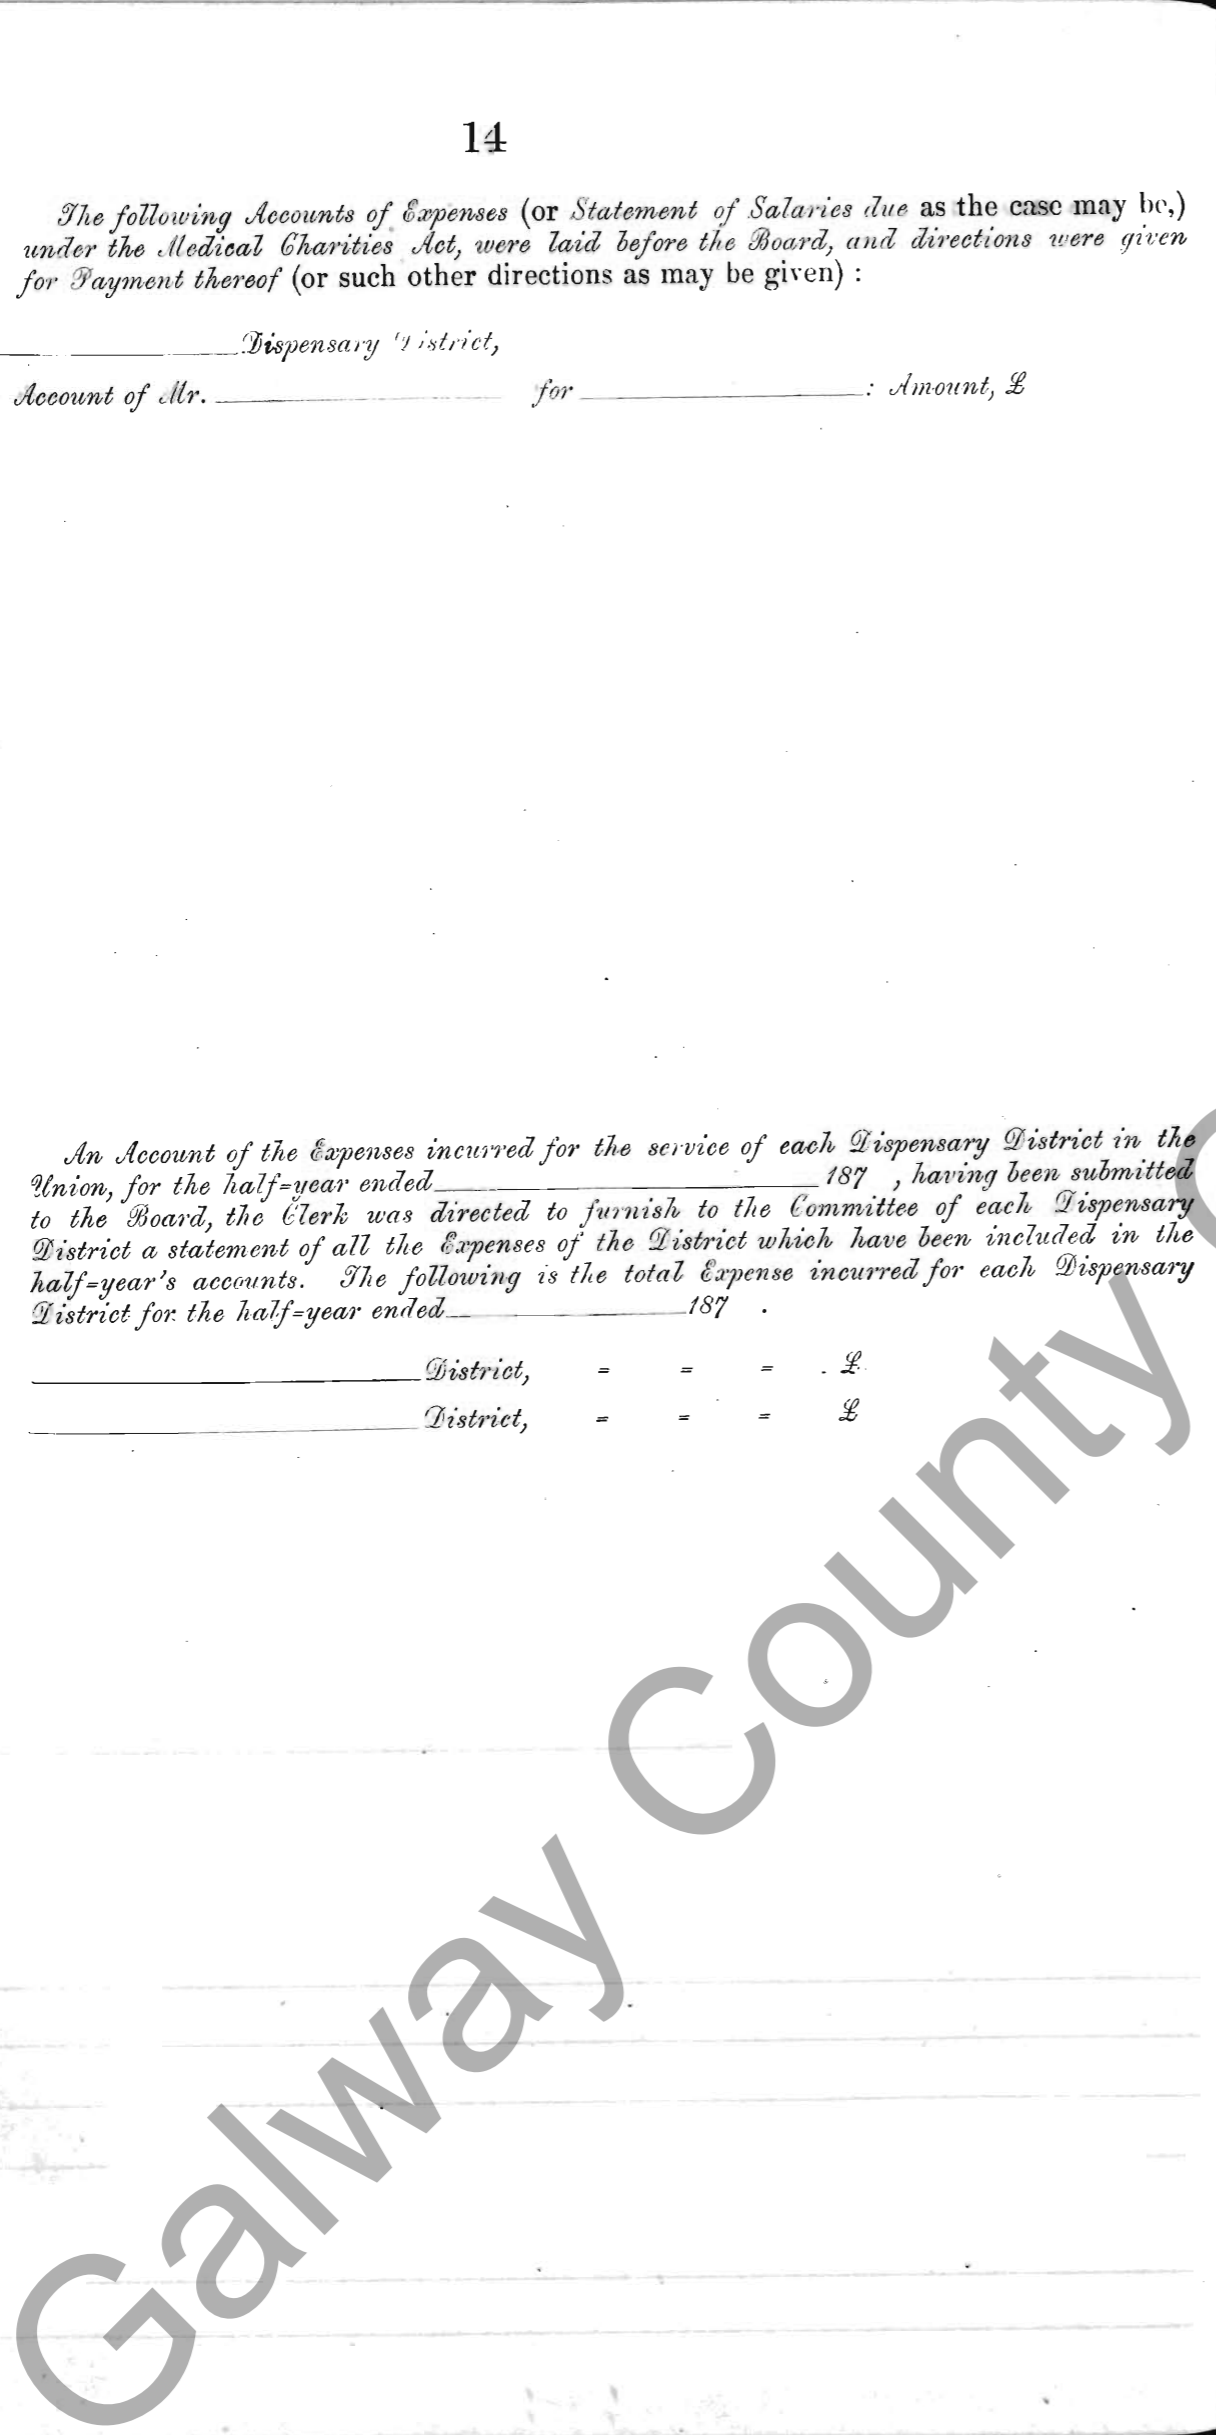 14
The following Accounts of Expenses (or Statement of Salaries due as the case may be,)
under the Medical Charities Act, were laid before the Board, and directions were given
for Payment thereof (or such other directions as may be given) :
Dispensary District,
Account of Mr. for : Amount, £
An Account of the Expenses incurred for the service of each Dispensary District in the
Union, for the half=year ended 187 , having been submitted
to the Board, the Clerk was directed to furnish to the Committee of each Dispensary
District a statement of all the Expenses of the District which have been included in the
half=year's accounts. The following is the total Expense incurred for each Dispensary
District for the half=year ended 187 .
District, = = = £
District, = = = £
Galway County